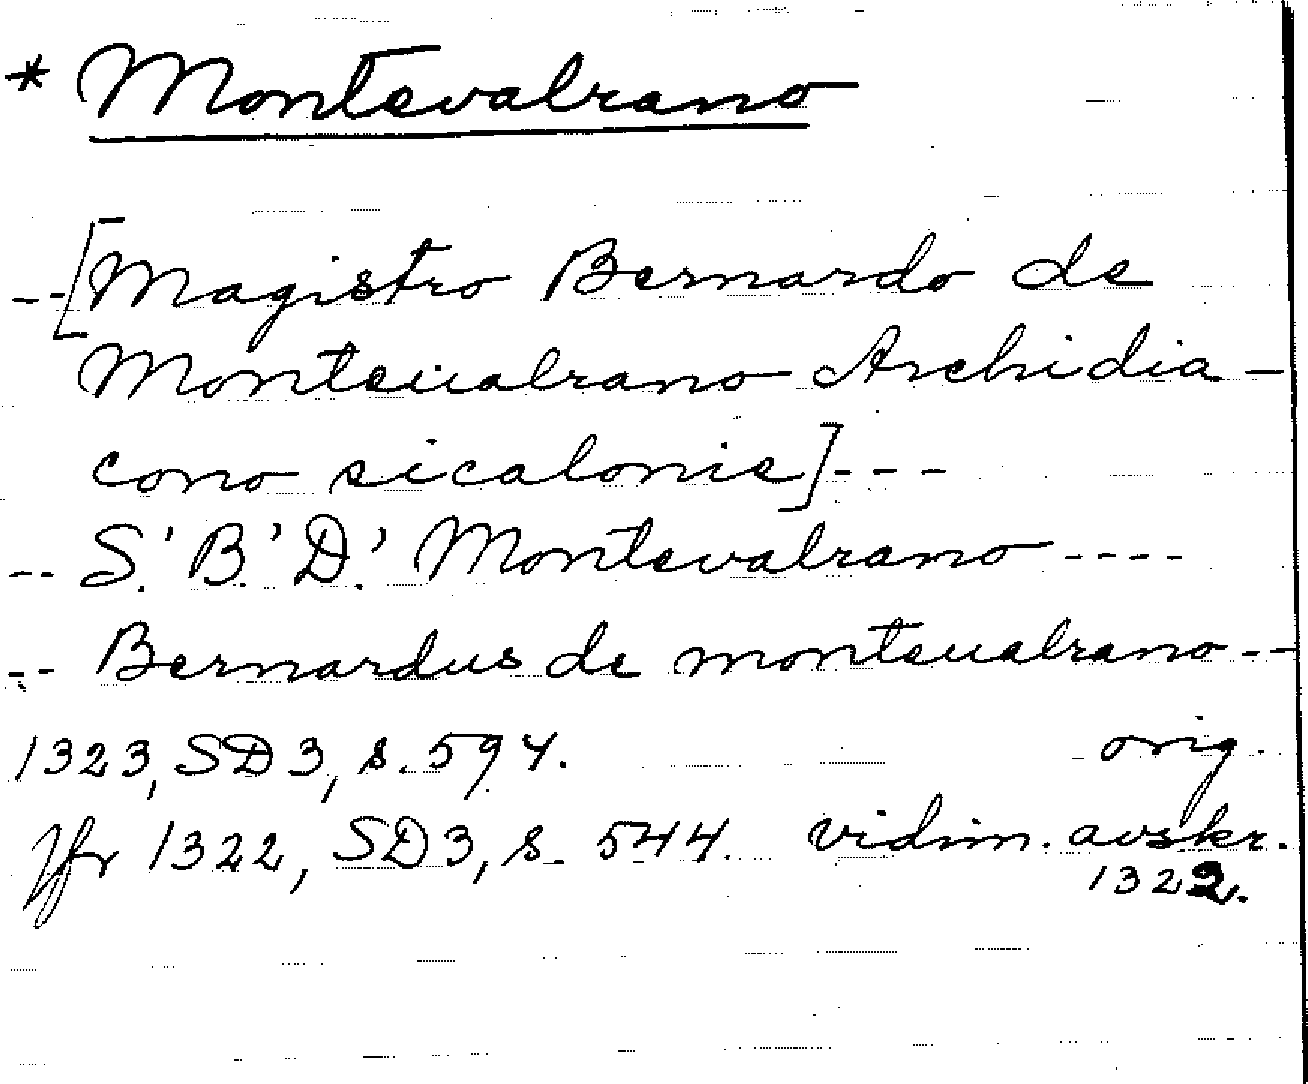 * Montevalrano
--[Magistro Bernardo de
Monteualrano Archidia-
cono sicalonie]---
-- S.' B.' D.' Montevalrano ----
-- Bernardus de monteualrano --
1323, SD 3, s. 594. orig.
Jfr 1322, SD 3, s. 544. vidim. avskr.
1322.